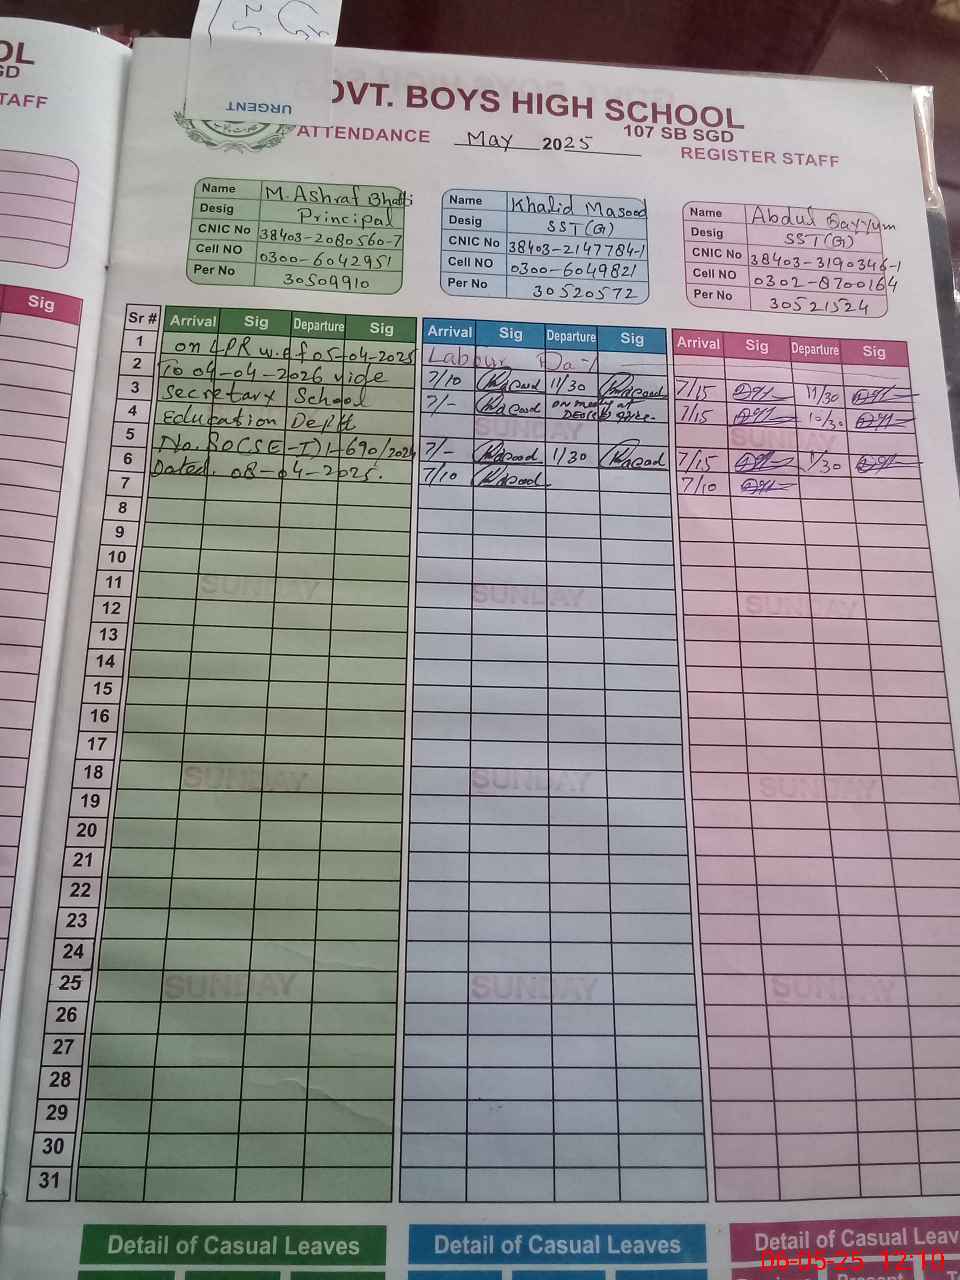 OL
SGD
TAFF
Sig
URGENT
OVT. BOYS HIGH SCHOOL
107 SB SGD
ATTENDANCE May 2025 REGISTER STAFF
Name M. Ashraf Bhatti
Desig Principal
CNIC No 38403-2080560-7
Cell NO 0300-6042951
Per No 30509910
Name Khalid Masood
Desig SST(G)
CNIC No 38403-2147784-1
Cell NO 0300-6049821
Per No 30520572
Name Abdul Qayyum
Desig SST(G)
CNIC No 38403-3190346-1
Cell NO 0302-8700164
Per No 30521524
Sr # Arrival Sig Departure Sig Arrival Sig Departure Sig Arrival Sig Departure Sig
1 on LPR w.e.f 05-04-2025 Labour Day
2 To 04-04-2026 vide 7/10 Masood 11/30 Masood 7/15 11/30
3 Secretary School 7/- Masood on meeting at 7/15 10/30
4 Education Deptt SUNDAY SUNDAY
5 No. SO(SE-I)1-690/2024 7/- Masood 1/30 Masood 7/15 1/30
6 Dated. 08-04-2025. 7/10 Masood 7/10
7
8
9
10
11 SUNDAY SUNDAY SUNDAY
12
13
14
15
16
17
18 SUNDAY SUNDAY SUNDAY
19
20
21
22
23
24
25 SUNDAY SUNDAY SUNDAY
26
27
28
29
30
31
Detail of Casual Leaves Detail of Casual Leaves Detail of Casual Leav
06-05-25 12:10